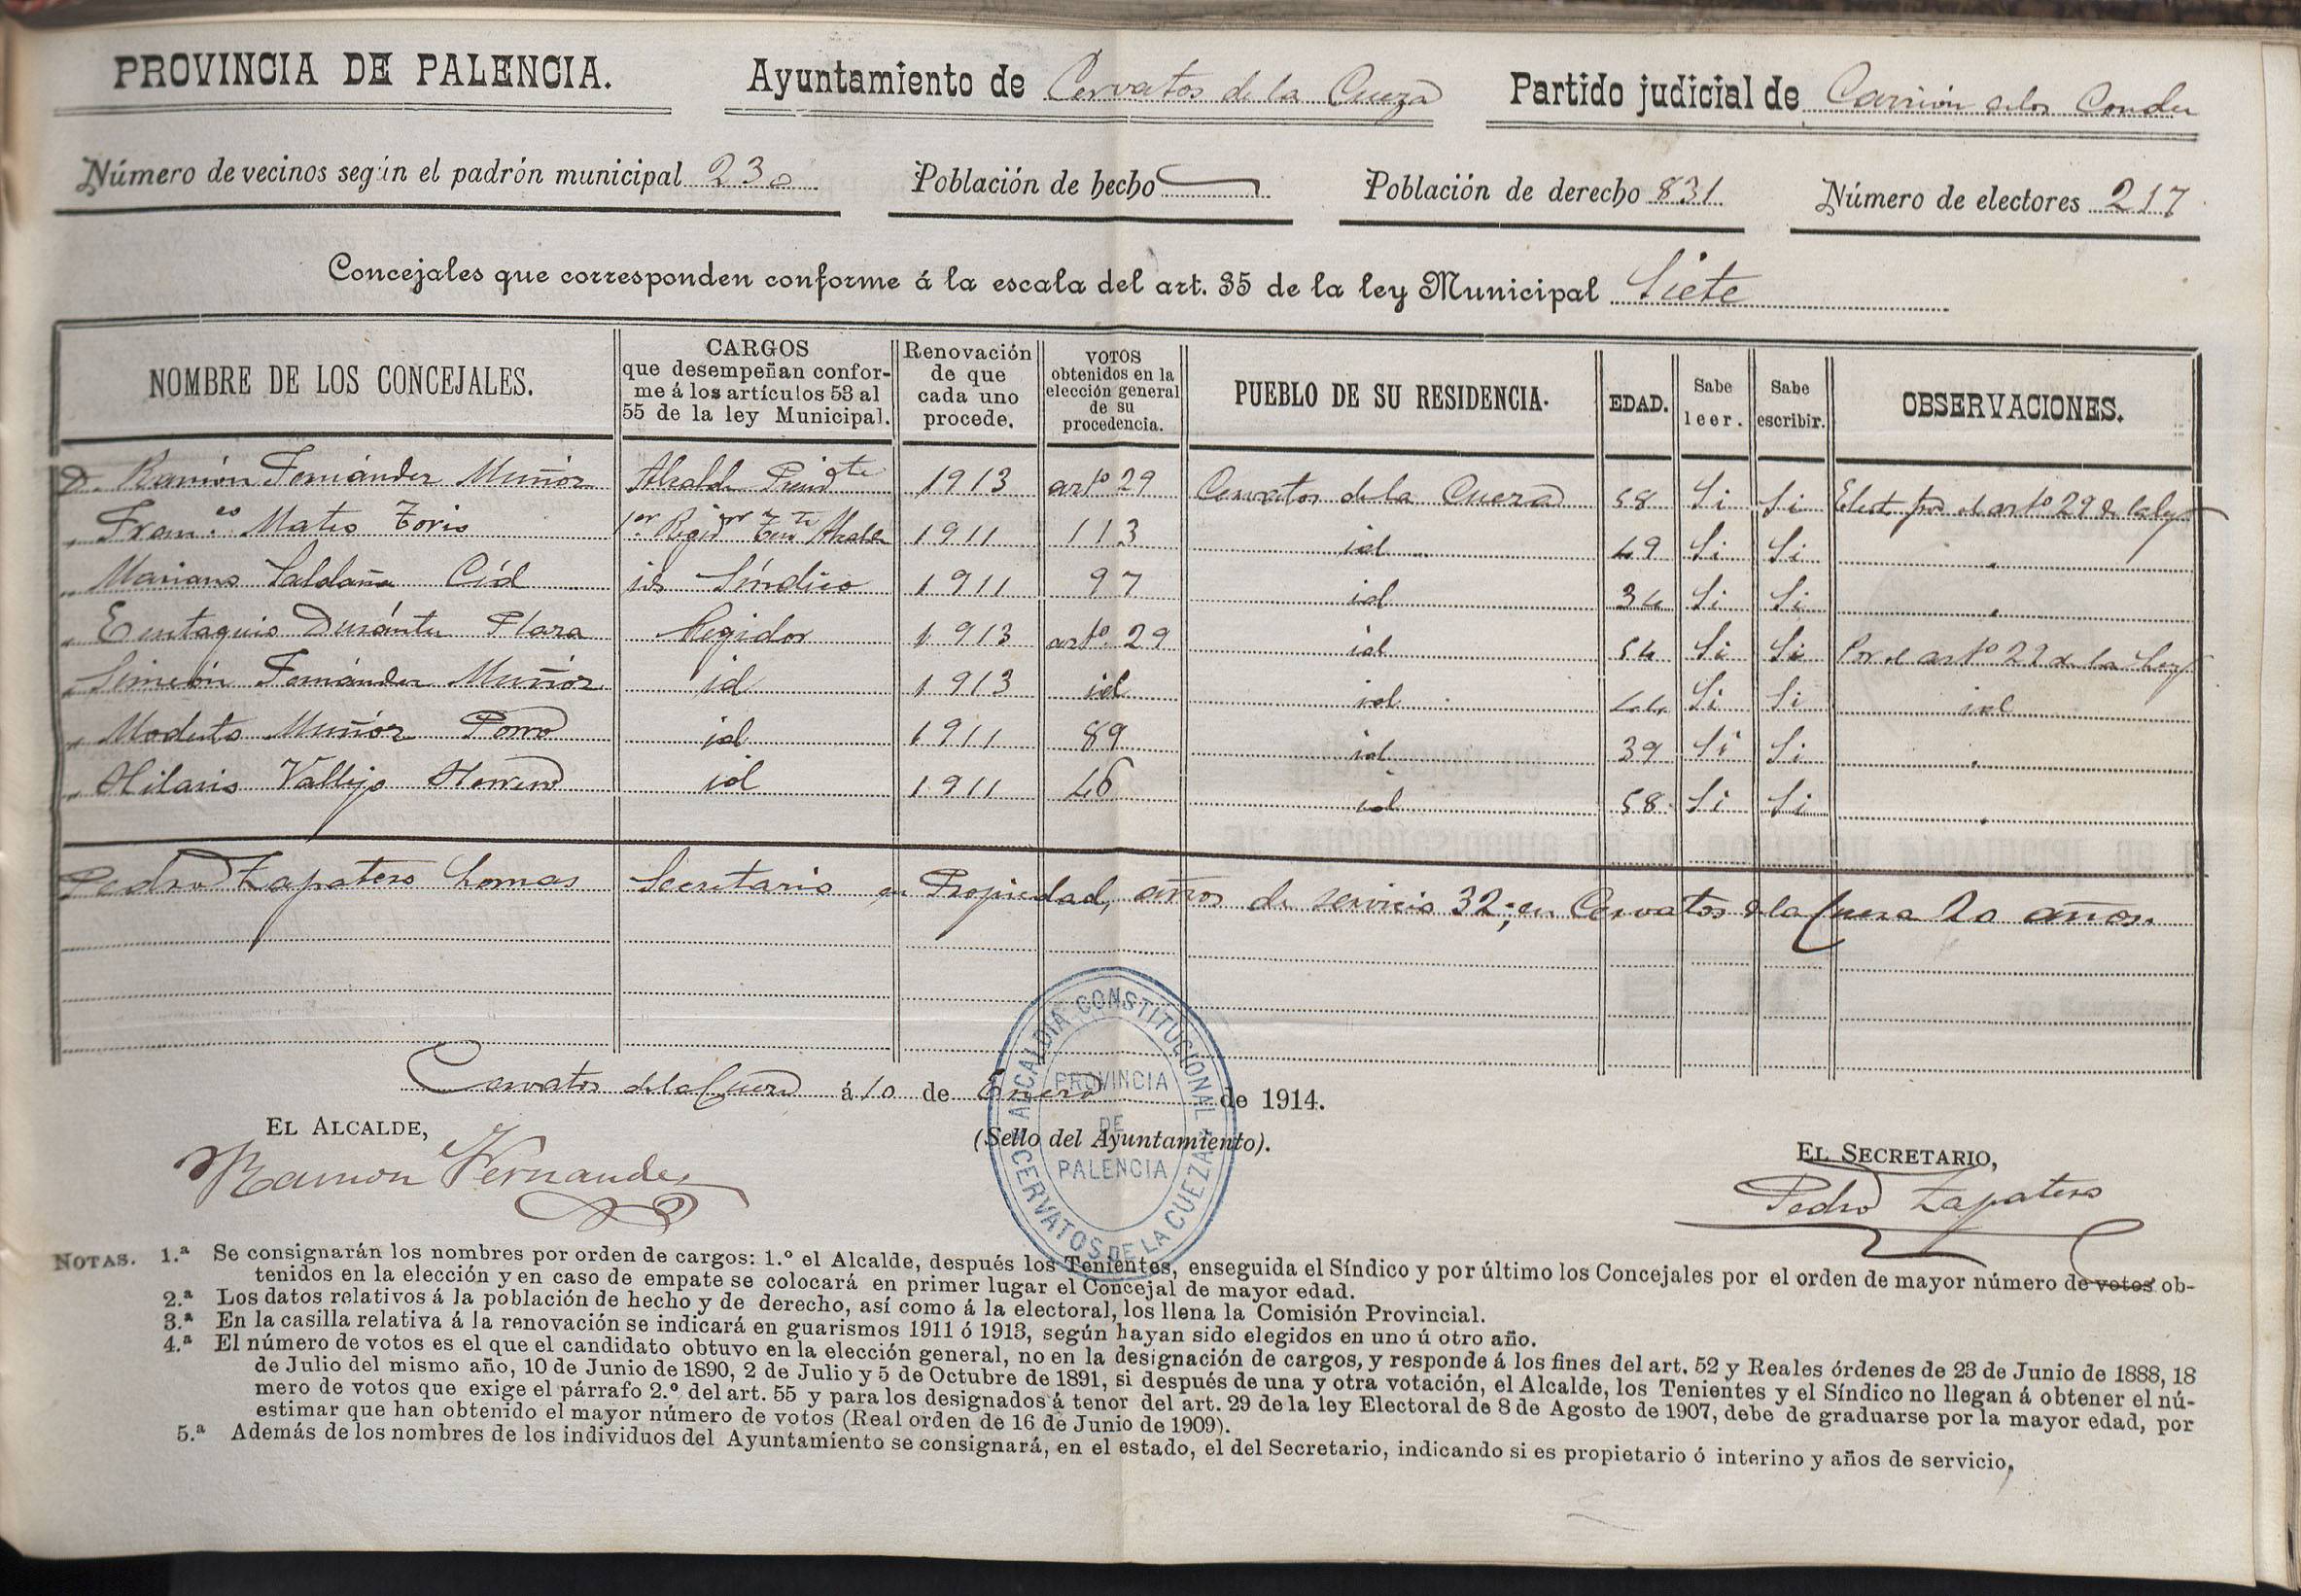 PROVINCIA DE PALENCIA. Ayuntamiento de Cervatos de la Cueza Partido judicial de Carrión de los Condes
Número de vecinos según el padrón municipal 230 Población de hecho Población de derecho 831 Número de electores 217
Concejales que corresponden conforme á la escala del art. 35 de la ley Municipal Siete
NOMBRE DE LOS CONCEJALES. CARGOS que desempeñan confor-me á los artículos 53 al 55 de la ley Municipal. Renovación de que cada uno procede. VOTOS obtenidos en la elección general de su procedencia. PUEBLO DE SU RESIDENCIA. EDAD. Sabe leer. Sabe escribir. OBSERVACIONES.
D. Ramón Fernández Muñoz Alcalde Presidte 1913 artº 29 Cervatos de la Cueza 58 Si Si Elect. por el artº 29 de la ley
" Franco Mateo 1er Regidor Alcalde 1911 113 id 49 Si Si "
" Mariano Saldaña Cid id Síndico 1911 97 id 34 Si Si "
" Eustaquio Durántez Plaza Regidor 1913 artº 29 id 54 Si Si Por el artº 29 de la Ley
" Simeón Fernández Muñoz id 1913 id id 44 Si Si id
" Modesto Muñoz Porro id 1911 89 id 39 Si Si "
" Hilario Vallejo Herrero id 1911 46 id 58 Si Si "
Pedro Zapatero Lomas Secretario en Propiedad, años de servicio 32; en Cervatos de la Cueza 20 años.
Cervatos de la Cueza á 10 de Enero de 1914.
EL ALCALDE,
Ramon Fernandez
(Sello del Ayuntamiento).
ALCALDIA CONSTITUCIONAL
PROVINCIA
DE
PALENCIA
CERVATOS DE LA CUEZA
EL SECRETARIO,
Pedro Zapatero
NOTAS. 1.ª Se consignarán los nombres por orden de cargos: 1.º el Alcalde, después los Tenientes, enseguida el Síndico y por último los Concejales por el orden de mayor número de votos ob-
tenidos en la elección y en caso de empate se colocará en primer lugar el Concejal de mayor edad.
2.ª Los datos relativos á la población de hecho y de derecho, así como á la electoral, los llena la Comisión Provincial.
3.ª En la casilla relativa á la renovación se indicará en guarismos 1911 ó 1913, según hayan sido elegidos en uno ú otro año.
4.ª El número de votos es el que el candidato obtuvo en la elección general, no en la designación de cargos, y responde á los fines del art. 52 y Reales órdenes de 23 de Junio de 1888, 18
de Julio del mismo año, 10 de Junio de 1890, 2 de Julio y 5 de Octubre de 1891, si después de una y otra votación, el Alcalde, los Tenientes y el Síndico no llegan á obtener el nú-
mero de votos que exige el párrafo 2.º del art. 55 y para los designados á tenor del art. 29 de la ley Electoral de 8 de Agosto de 1907, debe de graduarse por la mayor edad, por
estimar que han obtenido el mayor número de votos (Real orden de 16 de Junio de 1909).
5.ª Además de los nombres de los individuos del Ayuntamiento se consignará, en el estado, el del Secretario, indicando si es propietario ó interino y años de servicio,